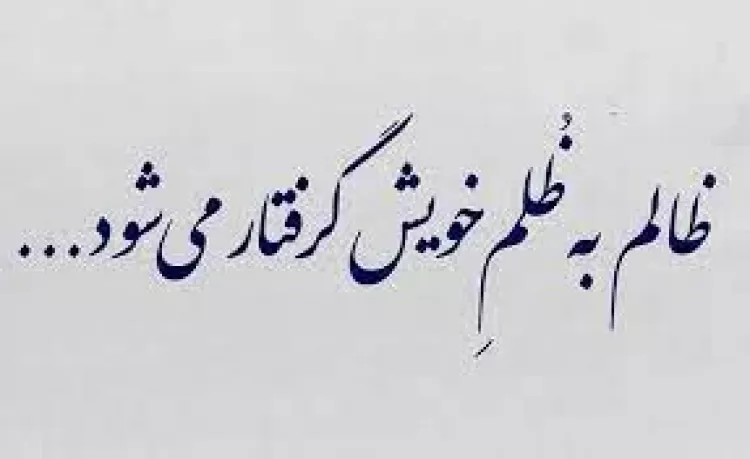 ظالم به ظُلمِ خویش گرفتار می‌شود...